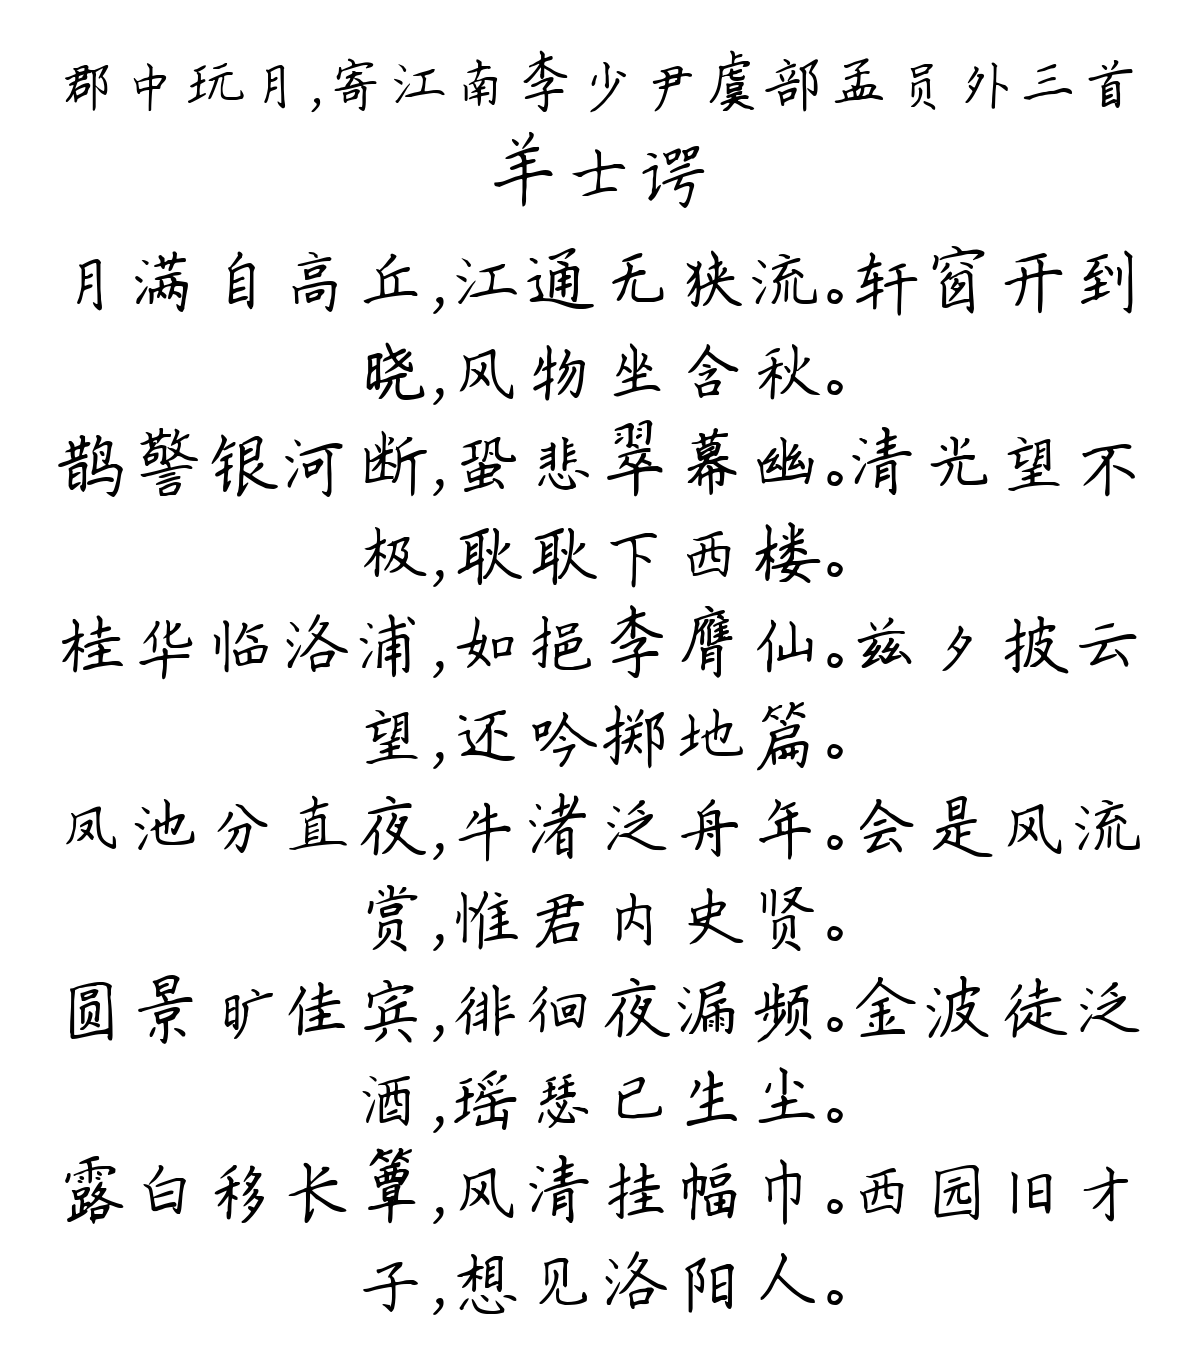 郡中玩月,寄江南李少尹虞部孟员外三首
羊士谔
月满自高丘,江通无狭流。轩窗开到
晓,风物坐含秋。
鹊警银河断,蛩悲翠幕幽。清光望不
极,耿耿下西楼。
桂华临洛浦,如挹李膺仙。兹夕披云
望,还吟掷地篇。
凤池分直夜,牛渚泛舟年。会是风流
赏,惟君内史贤。
圆景旷佳宾,徘徊夜漏频。金波徒泛
酒,瑶瑟已生尘。
露白移长簟,风清挂幅巾。西园旧才
子,想见洛阳人。